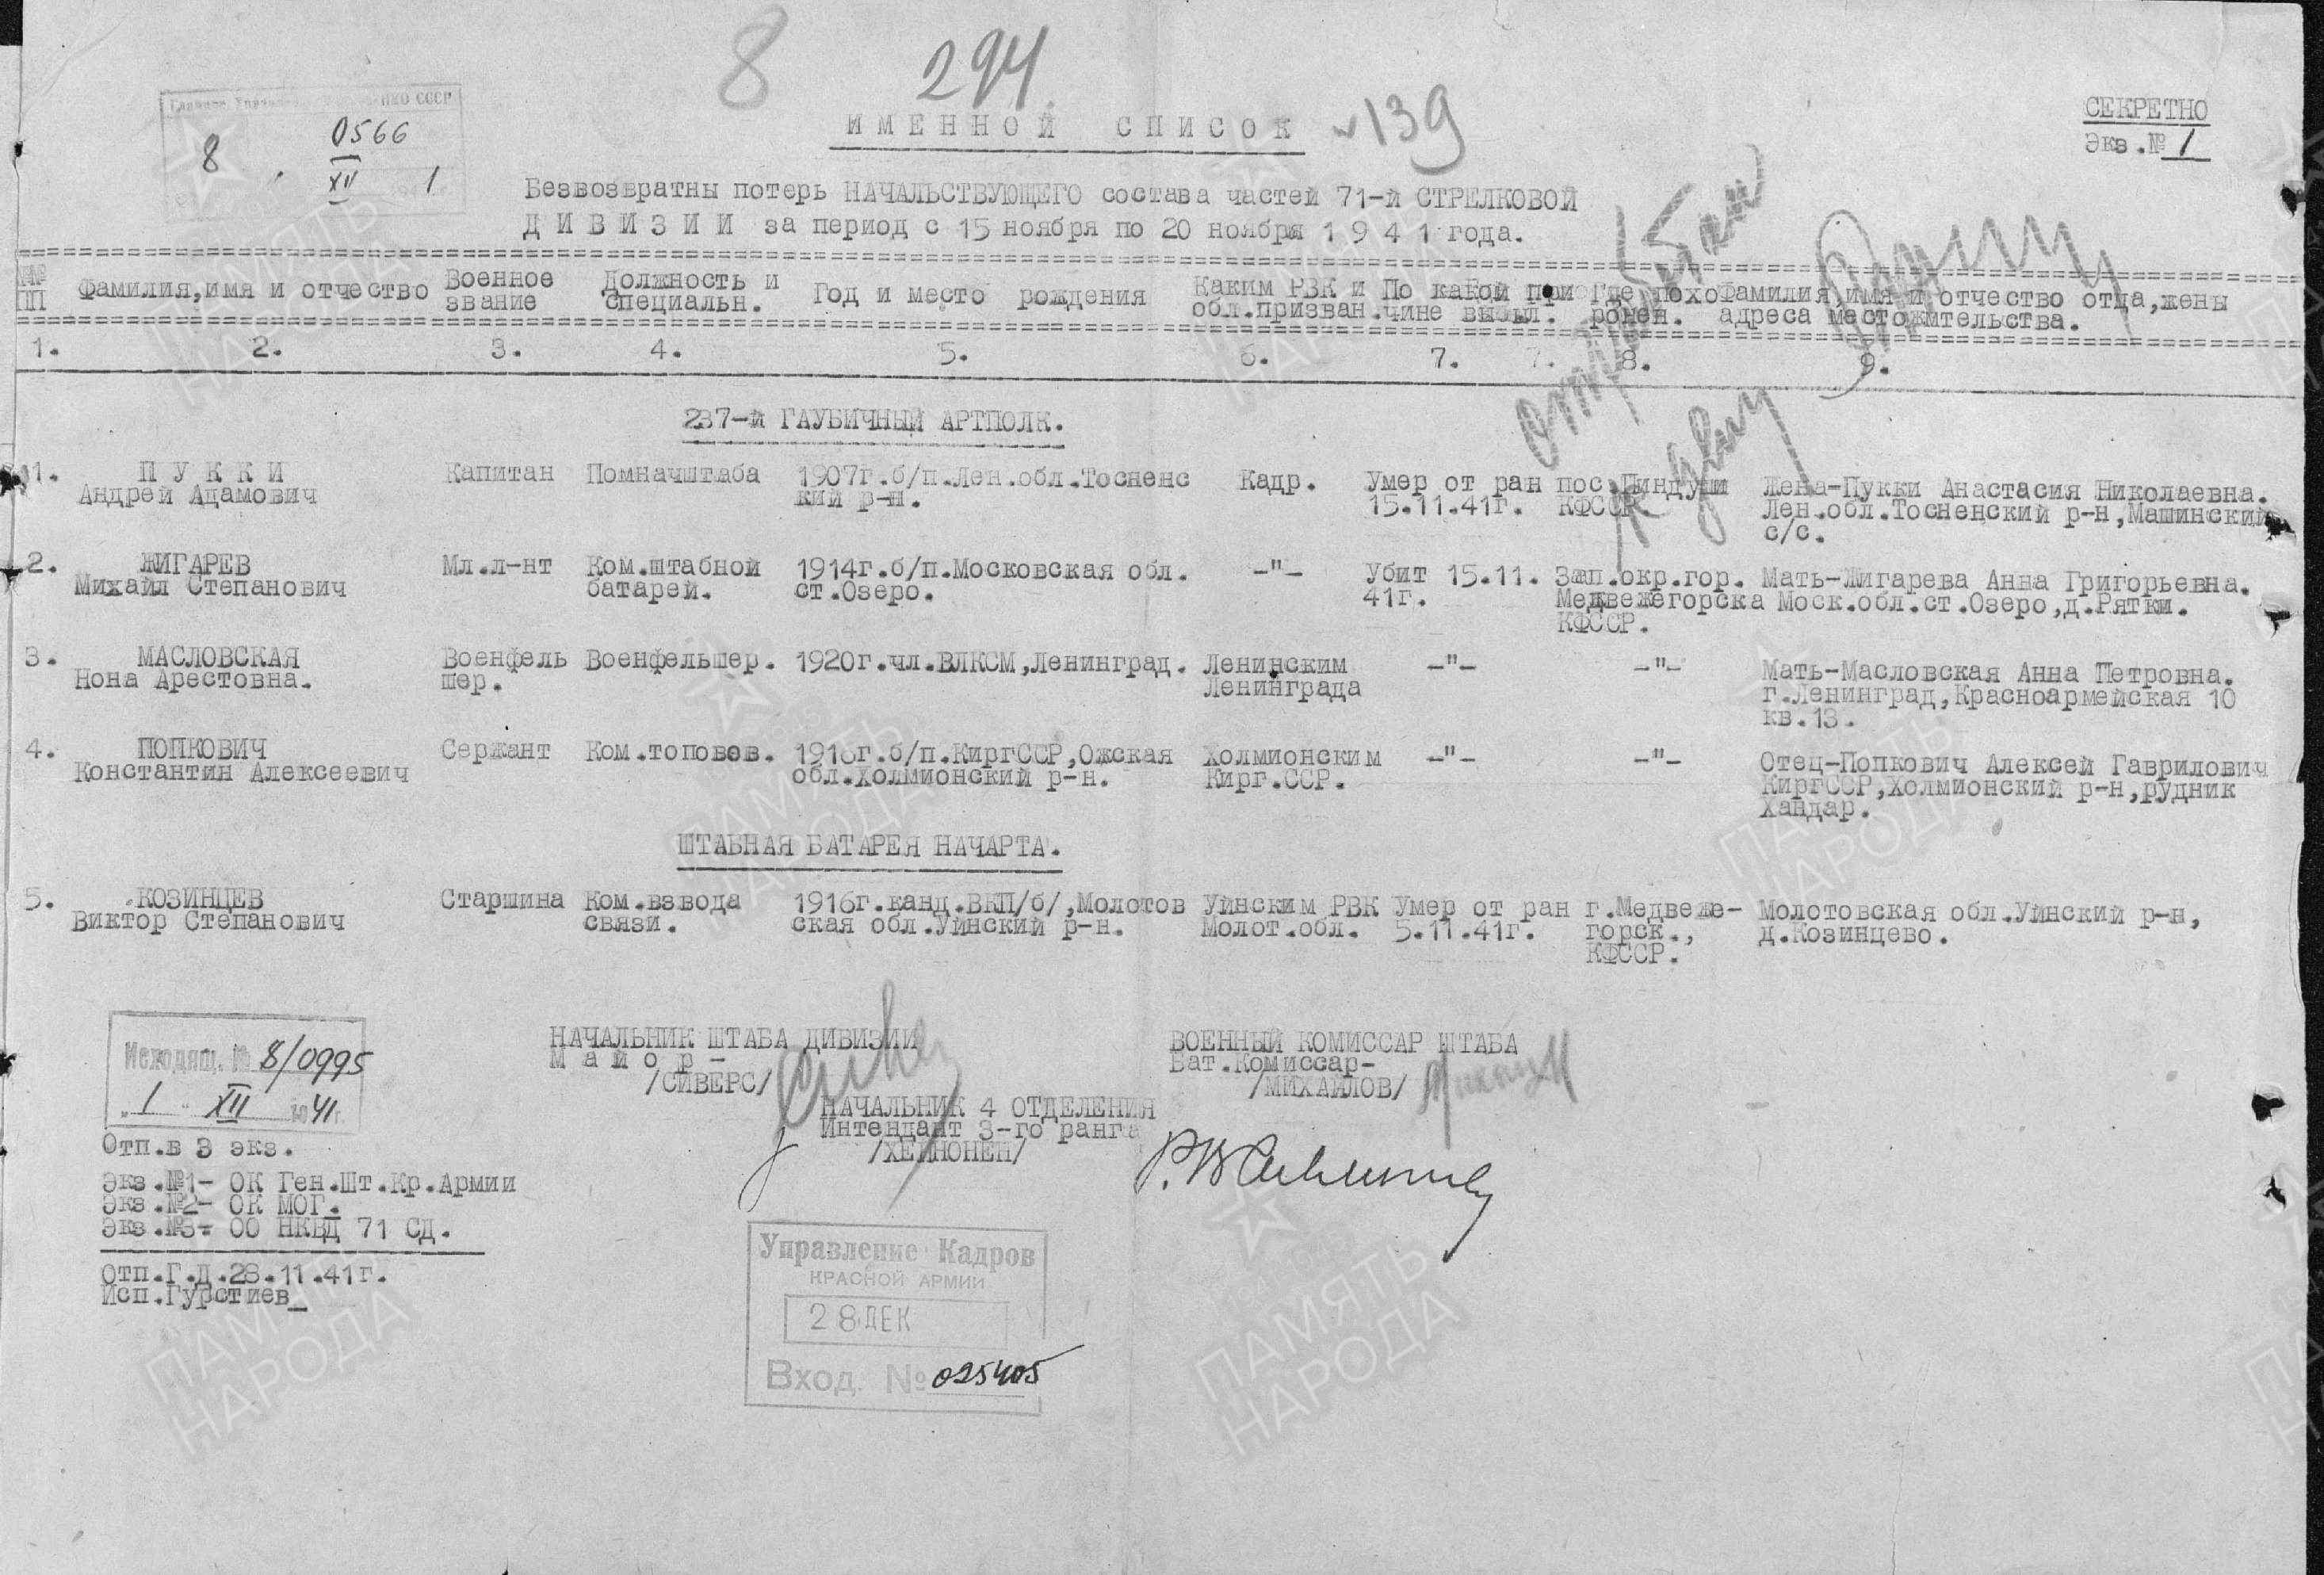 8
294
139
НКО СССР
8
0566
XII 1
СЕКРЕТНО
Экз.№ 1
ИМЕННОЙ СПИСОК
Безвозвратны потерь НАЧАЛЬСТВУЮЩЕГО состава частей 71-й СТРЕЛКОВОЙ
ДИВИЗИИ за период с 15 ноября по 20 ноября 1941 года.
№№ ПП
Фамилия,имя и отчество
Военное звание
Должность и специальн.
Год и место рождения
Каким РВК и обл.призван.
По какой при чине выбыл.
Где похо ронен.
Фамилия,имя и отчество отца,жены
адреса местожмтельства.
1. 2. 3. 4. 5. 6. 7. 7. 8. 9.
237-й ГАУБИЧНЫЙ АРТПОЛК.
1. ПУККИ Капитан Помначштаба 1907г.б/п.Лен.обл.Тосненс Кадр. Умер от ран пос.Пиндуши Жена-Пукки Анастасия Николаевна.
Андрей Адамович кий р-н. 15.11.41г. КФССР Лен.обл.Тосненский р-н,Машинский
с/с.
2. ЖИГАРЕВ Мл.л-нт Ком.штабной 1914г.б/п.Московская обл. -"- Убит 15.11. Зап.окр.гор. Мать-Жигарева Анна Григорьевна.
Михайл Степанович батарей. ст.Озеро. 41г. Медвежегорска Моск.обл.ст.Озеро,д.Рятки.
КФССР.
3. МАСЛОВСКАЯ Военфель Военфельшер. 1920г.чл.ВЛКСМ,Ленинград. Ленинским -"- -"- Мать-Масловская Анна Петровна.
Нона Арестовна. шер. Ленинграда г.Ленинград,Красноармейская 10
кв.13.
4. ПОПКОВИЧ Сержант Ком.топовзв. 1916г.б/п.КиргССР,Ожская Холмионским -"- -"- Отец-Попкович Алексей Гаврилович
Константин Алексеевич обл.Холмионский р-н. Кирг.ССР. КиргССР,Холмионский р-н,рудник
Хандар.
ШТАБНАЯ БАТАРЕЯ НАЧАРТА.
5. КОЗИНЦЕВ Старшина Ком.взвода 1916г.канд.ВКП/б/,Молотов Уинским РВК Умер от ран г.Медвеже- Молотовская обл.Уинский р-н,
Виктор Степанович связи. ская обл.Уинский р-н. Молот.обл. 5.11.41г. горск., д.Козинцево.
КФССР.
НАЧАЛЬНИК ШТАБА ДИВИЗИИ
Майор-
/СИВЕРС/
ВОЕННЫЙ КОМИССАР ШТАБА
Бат.Комиссар-
/МИХАЙЛОВ/
НАЧАЛЬНИК 4 ОТДЕЛЕНИЯ
Интендант 3-го ранга
/ХЕЙНОНЕН/
Исходящ. № 8/0995
"1" XII 1941г.
Отп.в 3 экз.
Экз.№1- ОК Ген.Шт.Кр.Армии
Экз.№2- ОК МОГ.
Экз.№3- ОО НКВД 71 СД.
Отп.Г.Д.28.11.41г.
Исп.Гурстиев
Управление Кадров
КРАСНОЙ АРМИИ
28 ДЕК
Вход. № 025405
ПАМЯТЬ НАРОДА